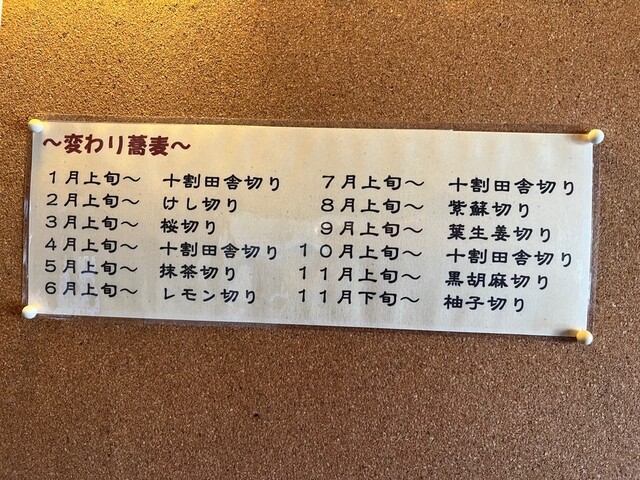 ～変わり蕎麦～
１月上旬～　十割田舎切り
２月上旬～　けし切り
３月上旬～　桜切り
４月上旬～　十割田舎切り
５月上旬～　抹茶切り
６月上旬～　レモン切り
７月上旬～　十割田舎切り
８月上旬～　紫蘇切り
９月上旬～　葉生姜切り
１０月上旬～　十割田舎切り
１１月上旬～　黒胡麻切り
１１月下旬～　柚子切り